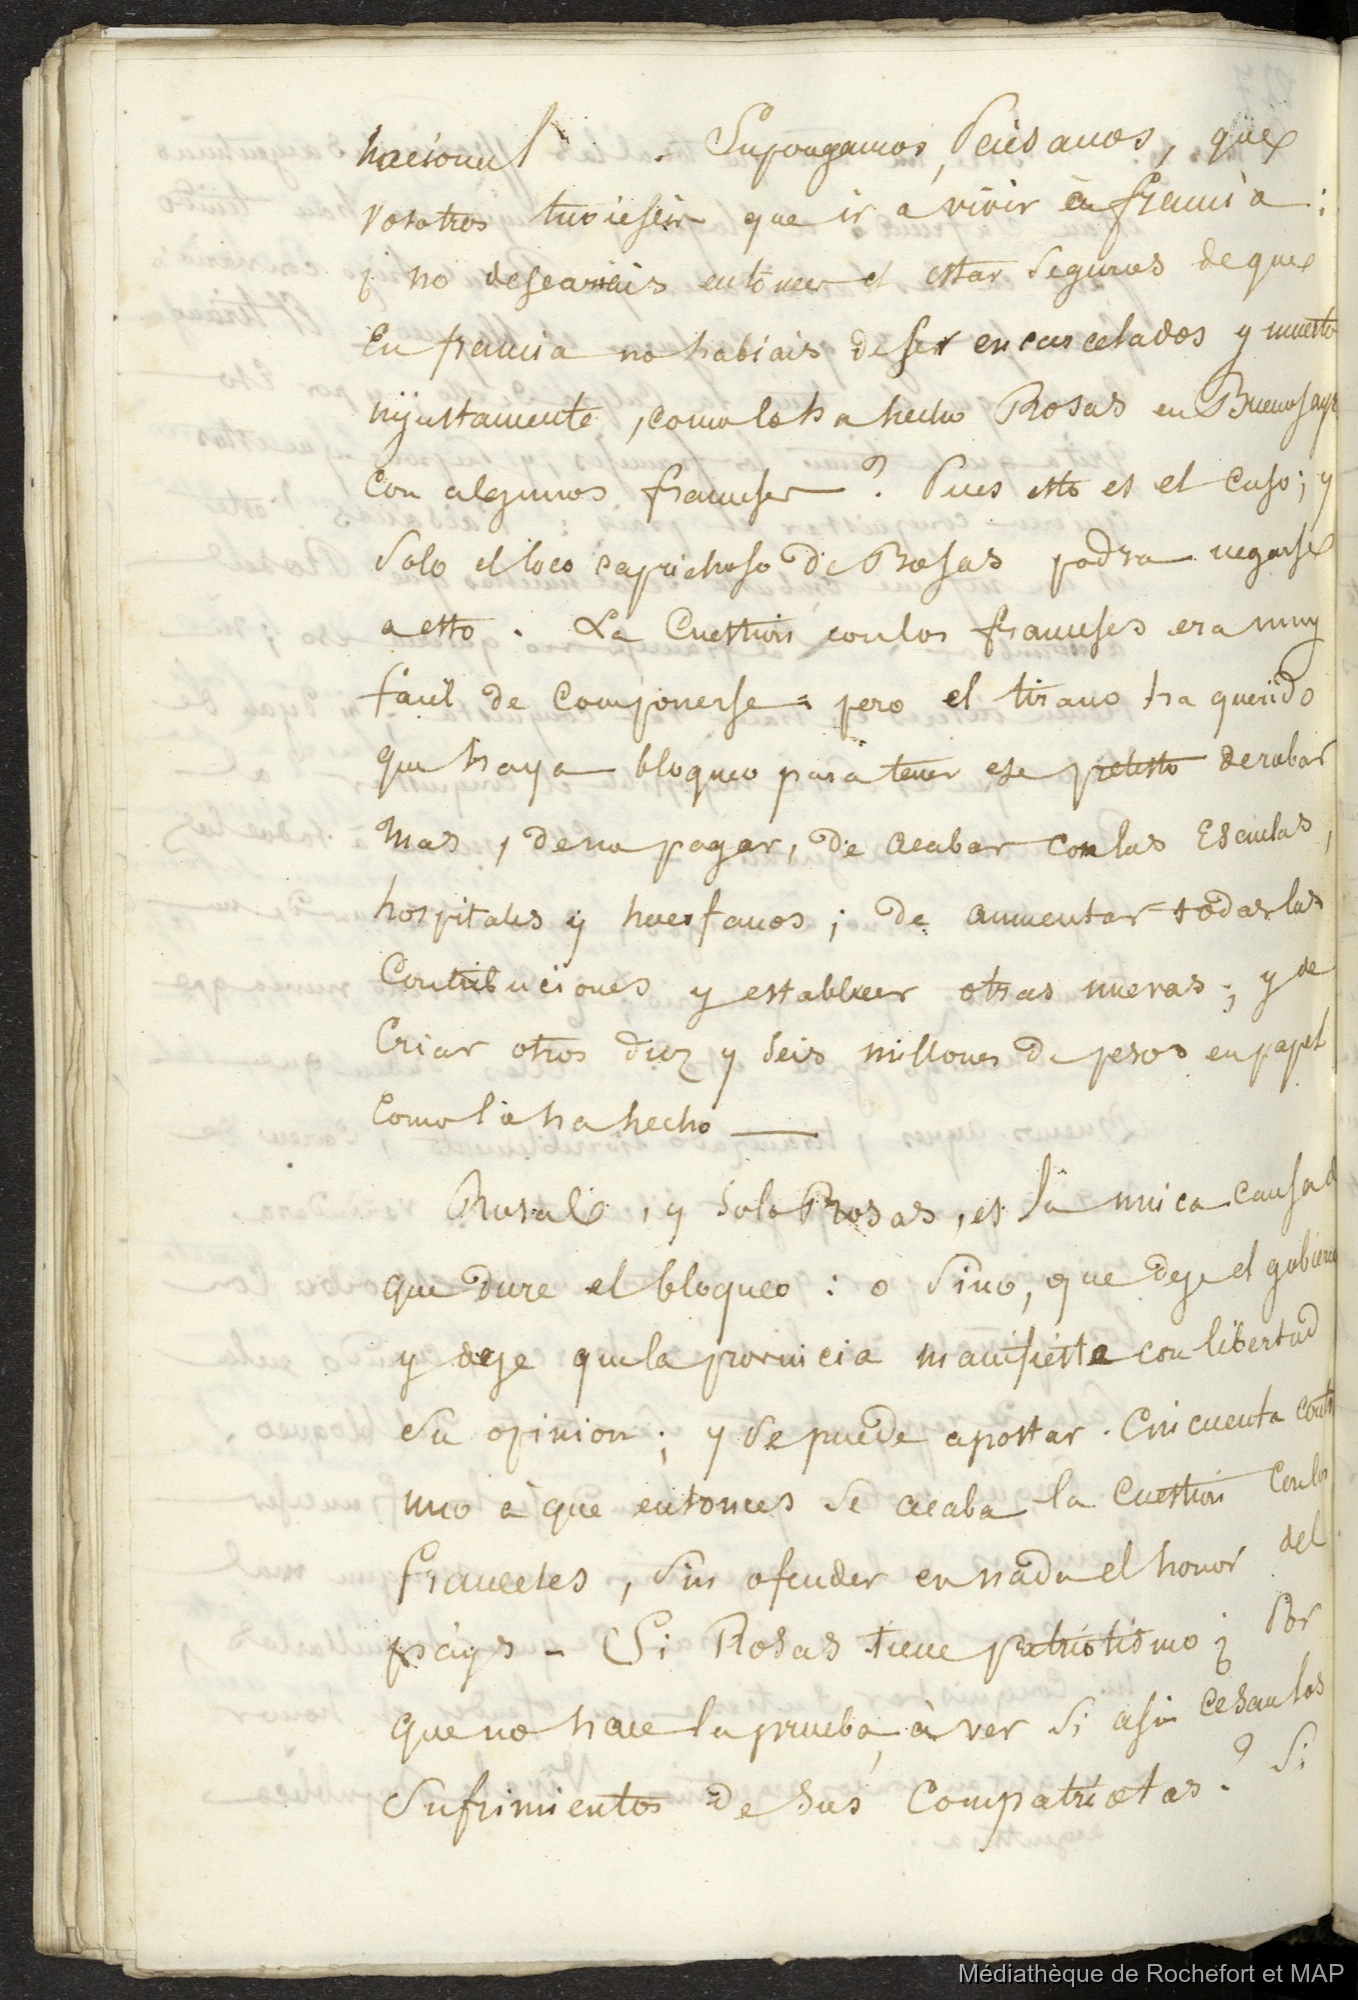 nacional. Supongamos, Paisanos, que
vosotros tuvieseis que ir a vivir en francia:
¿ no desearíais entonces el estar Seguros de que
En francia no habiais de ser encarcelados y muertos
injustamente, como lo ha hecho Rosas en Buenos ayres
Con algunos franceses? Pues esto es el Caso; y
Solo el loco caprichoso de Rosas podra negarse
a esto. La Cuestion con los franceses era muy
facil de Componerse = pero el tirano ha querido
que haya bloqueo para tener ese pretesto de robar
mas, de no pagar, de acabar con las Escuelas,
hospitales y huerfanos; de aumentar todas las
Contribuciones y establecer otras nuevas; y de
Criar otros diez y Seis millones de pesos en papel
como lo ha hecho —
Rosas, y Solo Rosas, es la unica causa de
que dure el bloqueo: o Sino, que deje el gobierno
y deje que la provincia manifieste con libertad
Su opinion; y Se puede apostar Cincuenta contra
uno à que entonces Se acaba la Cuestion Con los
franceses, Sin ofender en nada el honor del
pays - Si Rosas tiene patriotismo ¿ Por
que no hace la prueba, à ver Si asi Cesan los
Sufrimientos de Sus Compatriotas? Si
Médiathèque de Rochefort et MAP